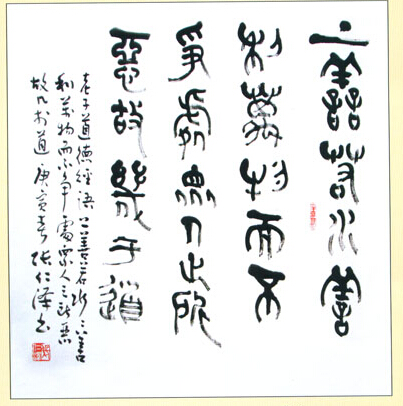 上善若水善
利萬物而不
爭處衆人之所
惡故幾于道
老子道德經語上善若水々善
利萬物而不爭處衆人之所惡
故几於道 庚寅春 張仁澤书